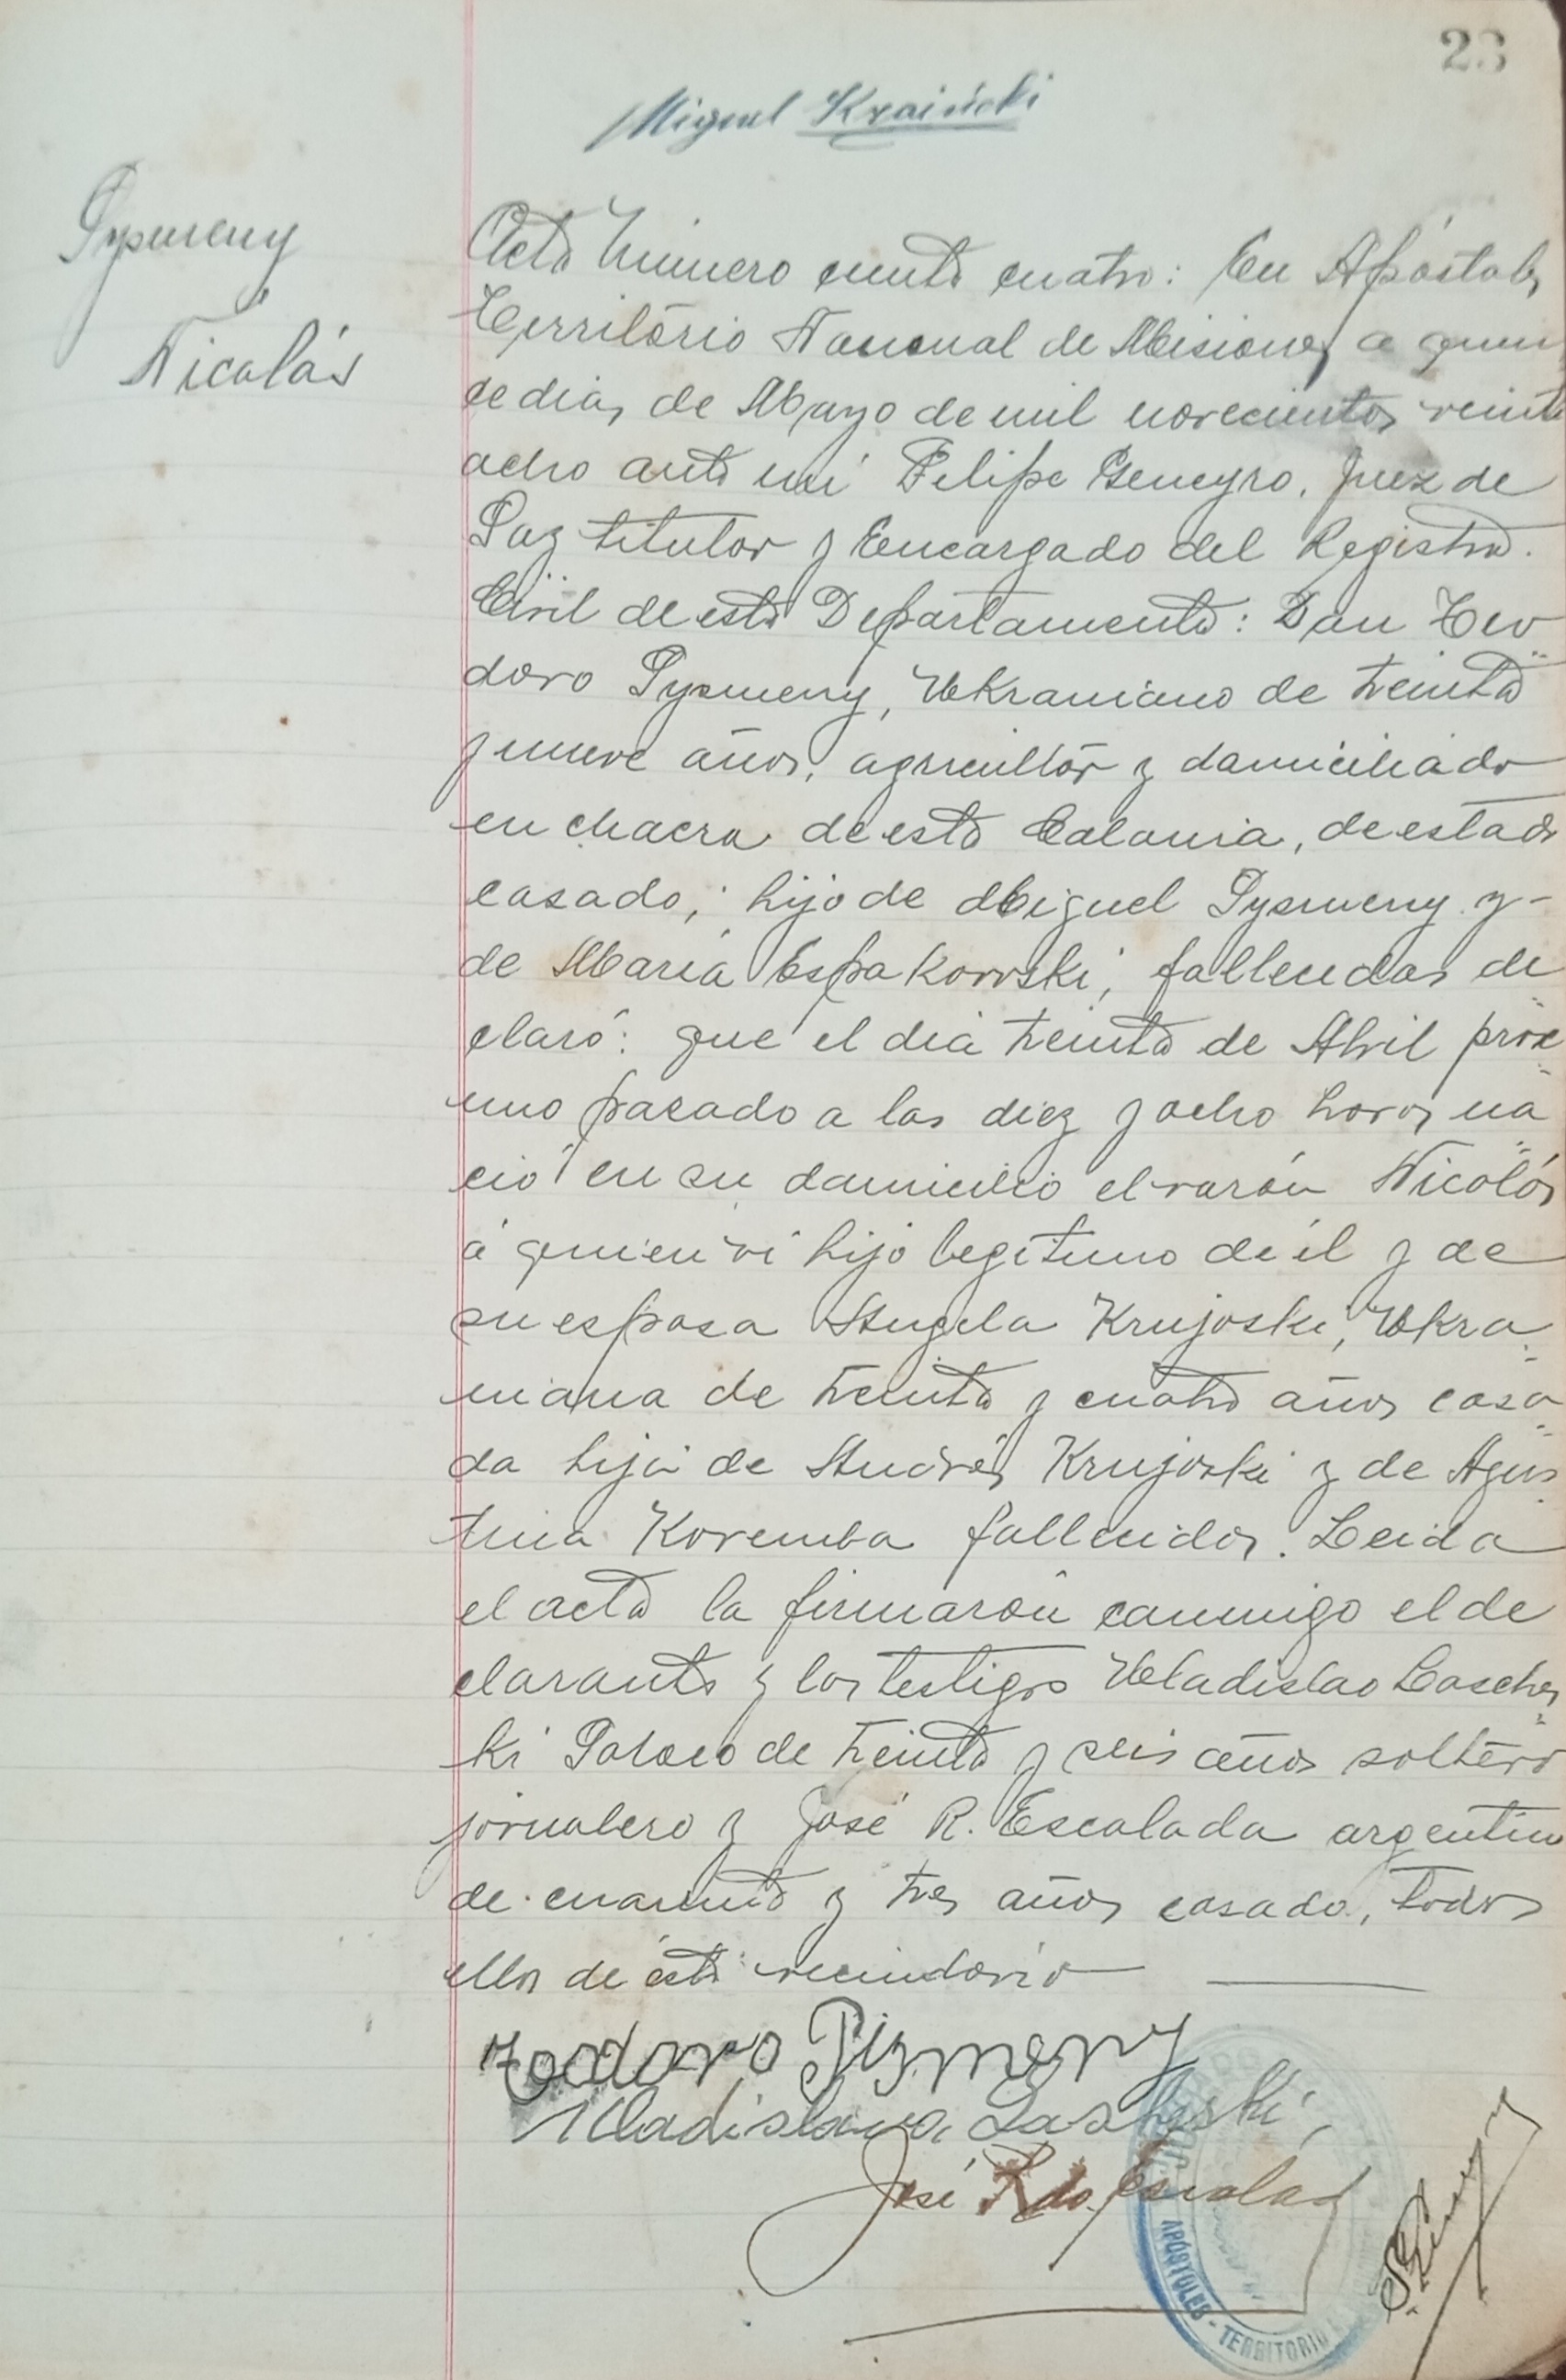 23
Miguel Kraiński
Pysmeny
Nicolás
Acta Número ciento cuatro: En Apóstoles,
Território Nacional de Misiones a quin
ce dias de Mayo de mil novecientos veinte
ocho ante mi Felipe Geneyro, Juez de
Paz titular y Encargado del Registro
Civil de este Departamento: Don Teo
doro Pysmeny, Ukraniano de treinta
y nueve años, agricultor y domiciliado
en chacra de esta Colonia, de estado
casado, hijo de Miguel Pysmeny y
de María Espakowski, fallecidos de
claró: que el dia treinta de Abril próxi
mo pasado a las diez y ocho horas na
ció en su domicilio el varón Nicolás
á quien vi hijo legitimo de él y de
su esposa Angela Krujoski, Ukra
niana de treinta y cuatro años casa
da hija de Andrés Krujoski y de Agus
tina Koremba fallecidos. Leida
el acta la firmarón conmigo el de
clarante y los testigos Uladislao Lasches
ki Polaco de treinta y seis años soltero
jornalero y José R. Escalada argentino
de cuarenta y tres años casado, todos
ellos de este vecindario
teodoro Pizmeny
Uladislavo Lasheski
José Rdo. Escalada
APÓSTOLES - TERRITORIO